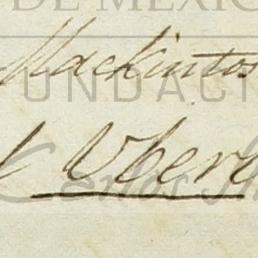 DE MEXIC
Mackintos
FUNDACI
Vbero
Carlos